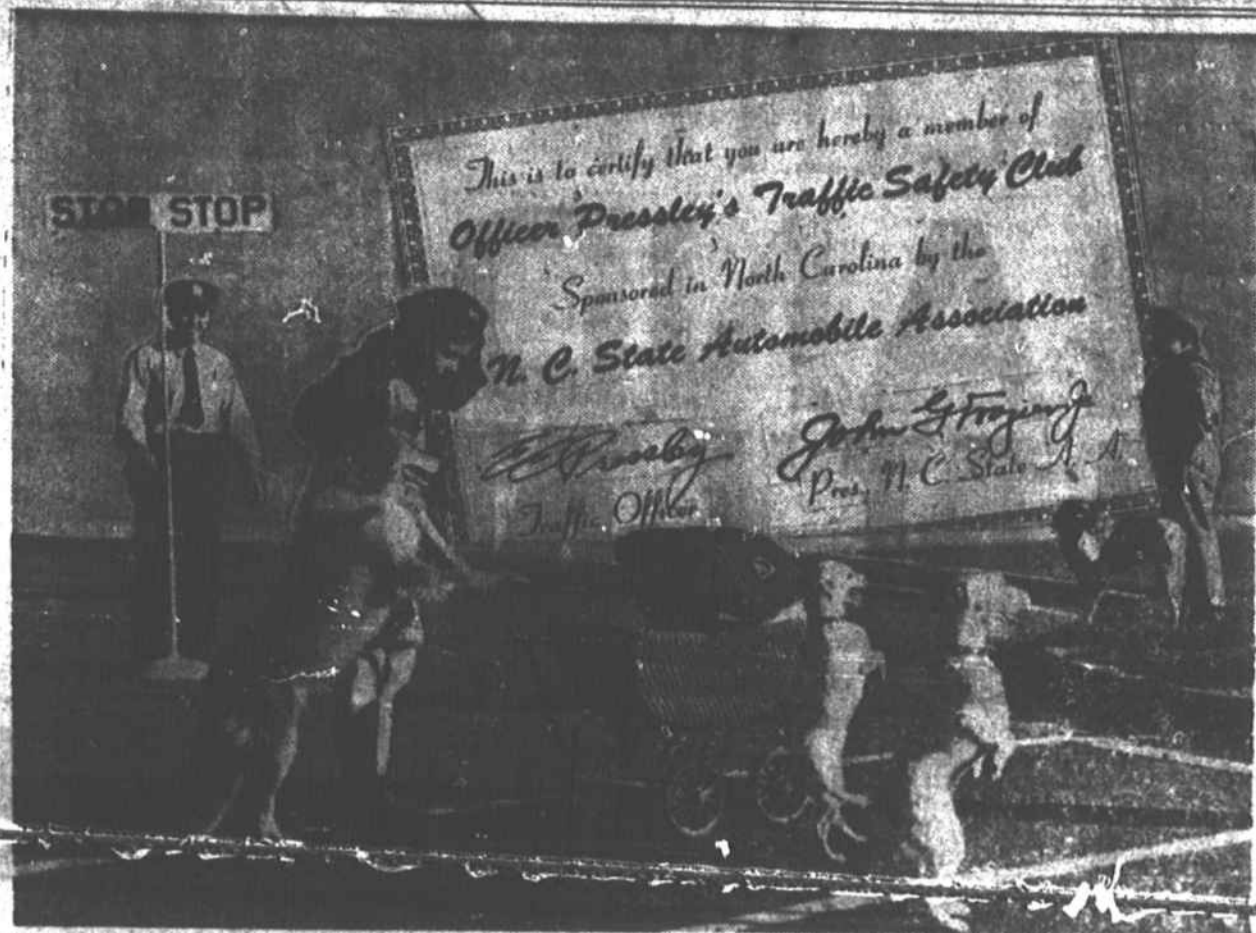 STOP STOP
This is to certify that you are hereby a member of
Officer Pressley's Traffic Safety Club
Sponsored in North Carolina by the
N. C. State Automobile Association
E C Pressley
John G Frazier Jr
Traffic Officer
Pres., N. C. State A. A.